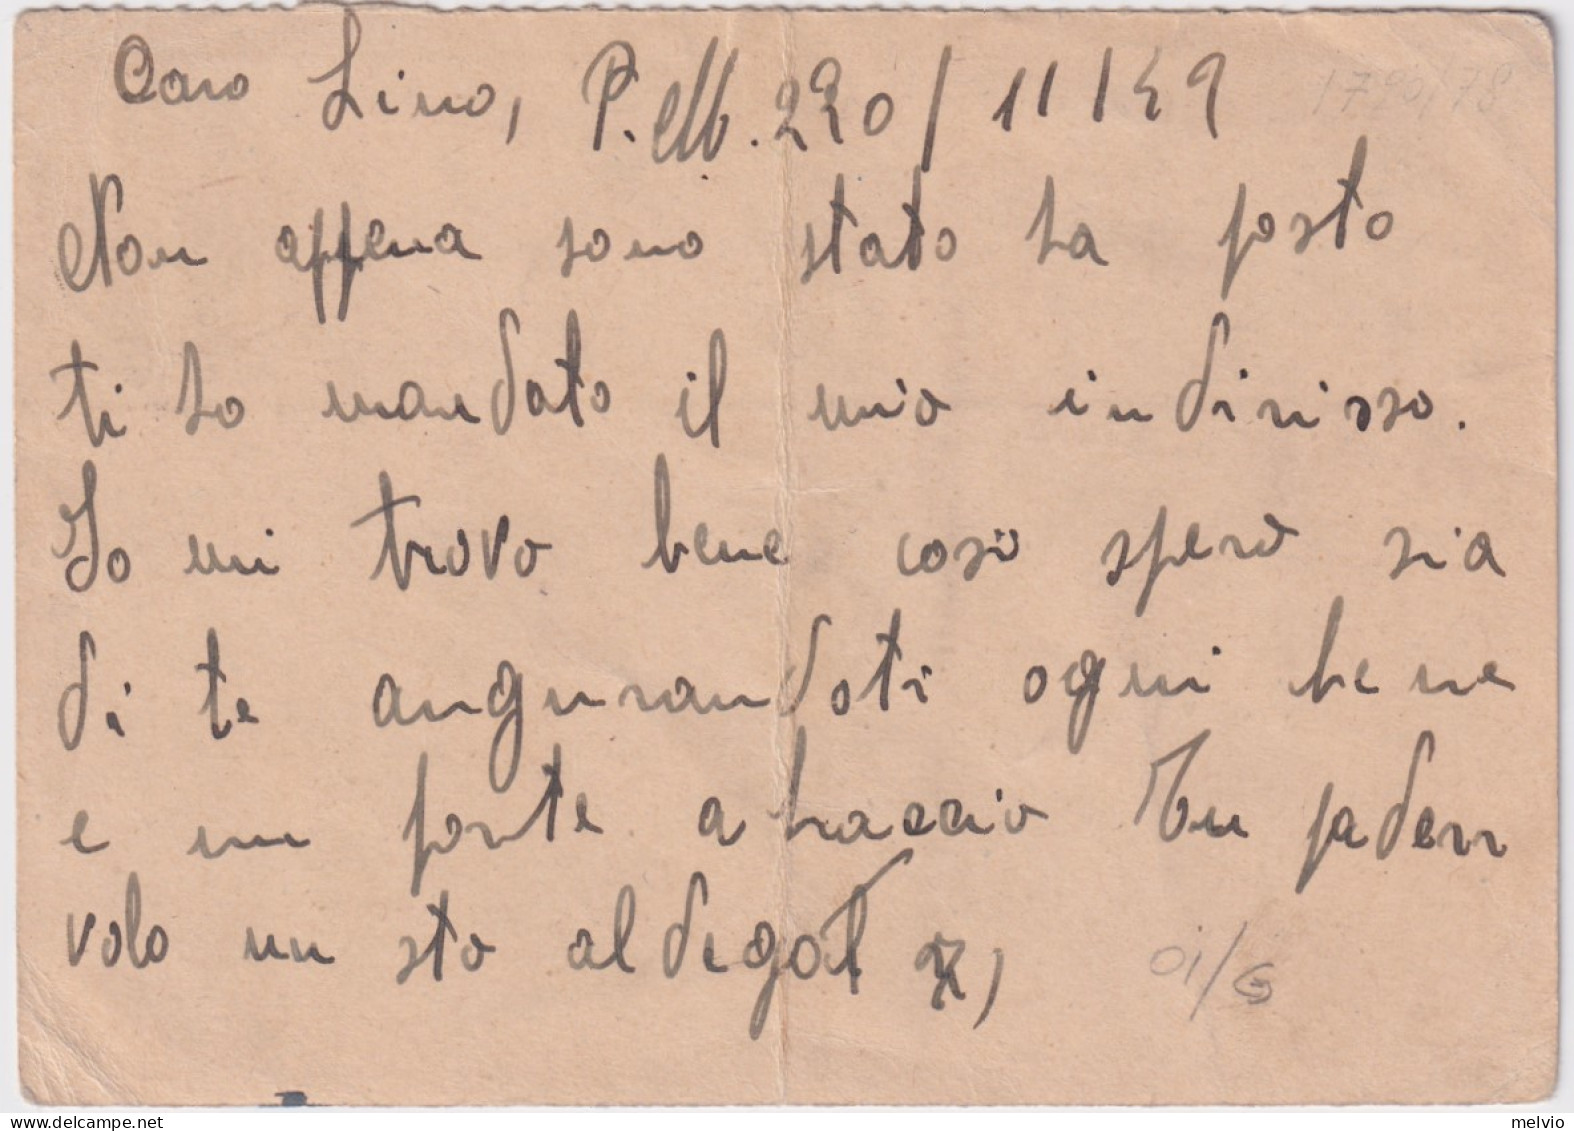 Caro Lino, P.M. 220/11/49
1790/78
Non appena sono stato ha posto
ti ho mandato il mio indirisso.
Io mi trovo bene così spero sia
di te angurandoti ogni bene
e un forte abraccio Tu
volo un sto al
01/G
melvio
www.delcampe.net